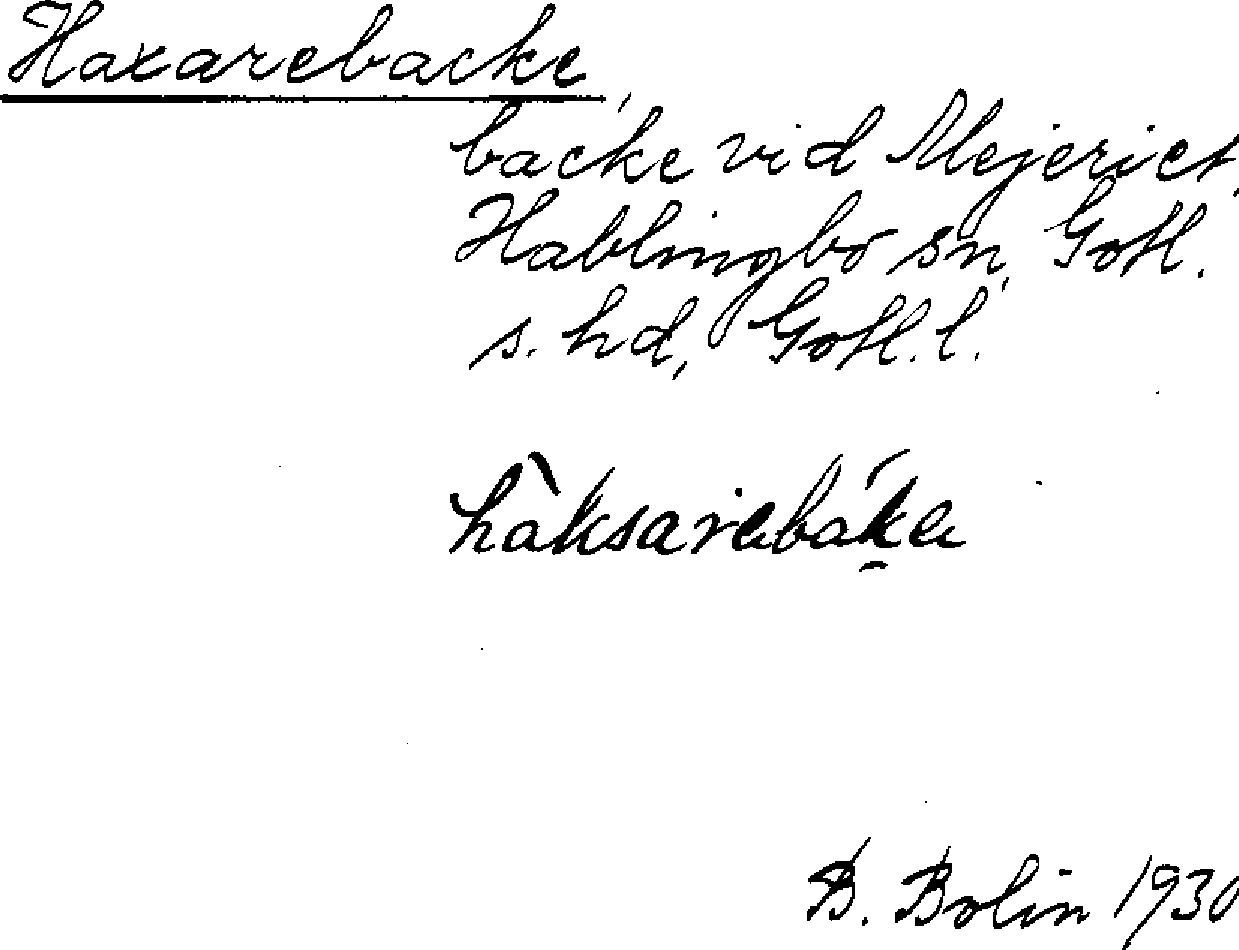 Haxarebacke,
backe vid Mejeriet,
Hablingbo sn, Gotl.
s. hd, Gotl. l.
hàksarebák̲e
B. Bolin 1930